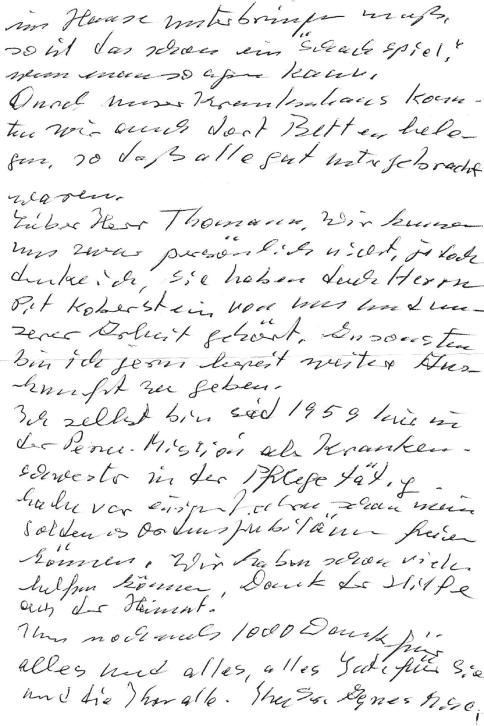 im Hause unterbringen muß,
so ist das schon ein "Schachspiel",
wenn man so sagen kann.
Durch unser Krankenhaus konn-
ten wir auch dort Betten bele-
gen, so daß alle gut untergebracht
waren.
Lieber Herr Thomann, wir kennen
uns zwar persönlich nicht, jedoch
denke ich, Sie haben durch Herrn
Pit Koberstein von uns und un-
serer Arbeit gehört. Ansonsten
bin ich gern bereit weiter Aus-
kunft zu geben.
Ich selbst bin seid 1959 hier in
der Peru-Mission als Kranken-
schwester in der Pflege tätig
habe vor einigen Jahren schon mein
goldenes Ordensjubiläum feiern
können. Wir haben schon vielen
helfen können, Dank der Hilfe
aus der Heimat.
Nun nochmals 1000 Dank für
alles und alles, alles Gute für Sie
und die Ihren alle. Ihre Sr. Agnes